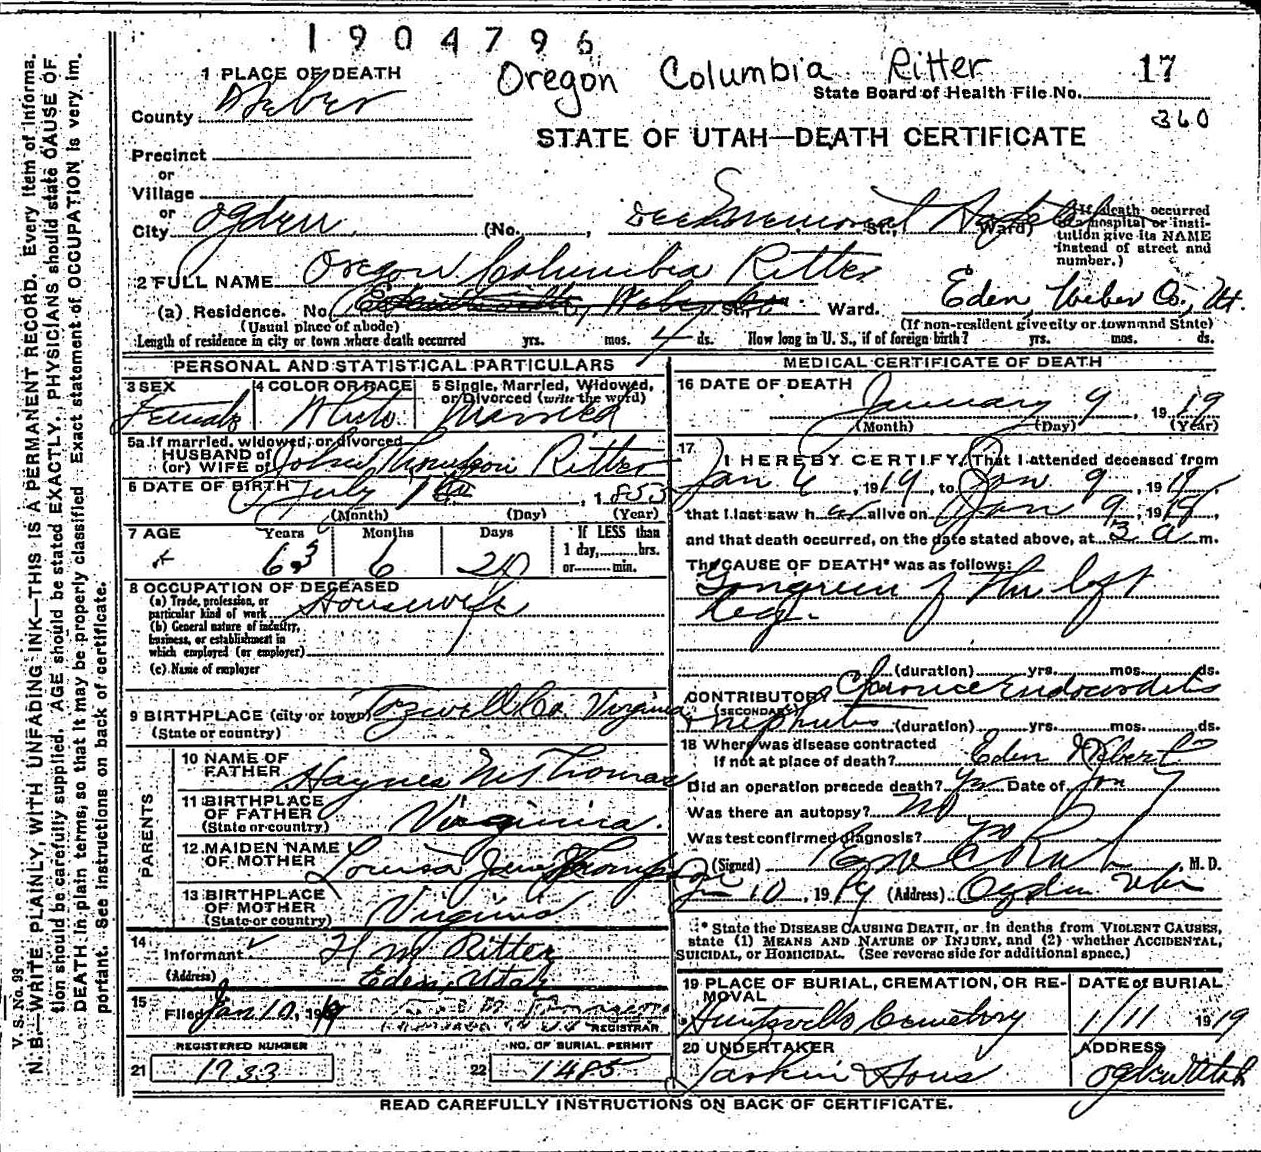 1904796
Oregon Columbia Ritter
17
State Board of Health File No.
360
STATE OF UTAH—DEATH CERTIFICATE
1 PLACE OF DEATH
County Weber
Precinct
or
Village
or
City Ogden (No. , Dee Memorial Hospital St., Ward)
(If death occurred
in a hospital or insti-
tution give its NAME
instead of street and
number.)
2 FULL NAME Oregon Columbia Ritter
(a) Residence. No. St. Ward. Eden, Weber Co., Ut.
(Usual place of abode) (If non-resident give city or town and State)
Length of residence in city or town where death occurred yrs. mos. 4 ds. How long in U. S., if of foreign birth? yrs. mos. ds.
PERSONAL AND STATISTICAL PARTICULARS
3 SEX 4 COLOR OR RACE 5 Single, Married, Widowed,
or Divorced (write the word)
Female White Married
5a If married, widowed, or divorced
HUSBAND of
(or) WIFE of John Thompson Ritter
6 DATE OF BIRTH July , 1855
(Month) (Day) (Year)
7 AGE Years Months Days If LESS than
1 day, hrs.
or min.
63 6 20
8 OCCUPATION OF DECEASED
(a) Trade, profession, or
particular kind of work Housewife
(b) General nature of industry,
business, or establishment in
which employed (or employer)
(c) Name of employer
9 BIRTHPLACE (city or town) Tazwell Co. Virginia
(State or country)
PARENTS
10 NAME OF
FATHER Haynes M Thomas
11 BIRTHPLACE
OF FATHER
(State or country) Virginia.
12 MAIDEN NAME
OF MOTHER Louisa Jane Thompson
13 BIRTHPLACE
OF MOTHER
(State or country) Virginia
14
Informant H M Ritter
(Address) Eden, Utah
15
Filed Jan 10, 1919
REGISTRAR
REGISTERED NUMBER
21 1733
NO. OF BURIAL PERMIT
22 1485
MEDICAL CERTIFICATE OF DEATH
16 DATE OF DEATH
January 9, 1919
(Month) (Day) (Year)
17
I HEREBY CERTIFY, That I attended deceased from
Jan 6, 1919, to Jan 9, 1919,
that I last saw her alive on Jan 9, 1919,
and that death occurred, on the date stated above, at 3 a m.
The CAUSE OF DEATH* was as follows:
Gangreen of the left
leg.
(duration) yrs. mos. ds.
CONTRIBUTORY Chronice Endocarditis
(SECONDARY)
nephritis (duration) yrs. mos. ds.
18 Where was disease contracted
if not at place of death? Eden
Did an operation precede death? Yes Date of Jan 7
Was there an autopsy? No
Was test confirmed diagnosis?
(Signed) , M. D.
Jan 10, 1919 (Address) Ogden Utah
* State the DISEASE CAUSING DEATH, or in deaths from VIOLENT CAUSES,
state (1) MEANS AND NATURE OF INJURY, and (2) whether ACCIDENTAL,
SUICIDAL, or HOMICIDAL. (See reverse side for additional space.)
19 PLACE OF BURIAL, CREMATION, OR RE-
MOVAL
Huntsville Cemetery
DATE of BURIAL
1/11 1919
20 UNDERTAKER
Larkin & Sons
ADDRESS
Ogden Utah
READ CAREFULLY INSTRUCTIONS ON BACK OF CERTIFICATE.
V. S. No. 98
N. B.—WRITE PLAINLY, WITH UNFADING INK—THIS IS A PERMANENT RECORD. Every item of informa-
tion should be carefully supplied. AGE should be stated EXACTLY. PHYSICIANS should state CAUSE OF
DEATH in plain terms, so that it may be properly classified. Exact statement of OCCUPATION is very im-
portant. See instructions on back of certificate.